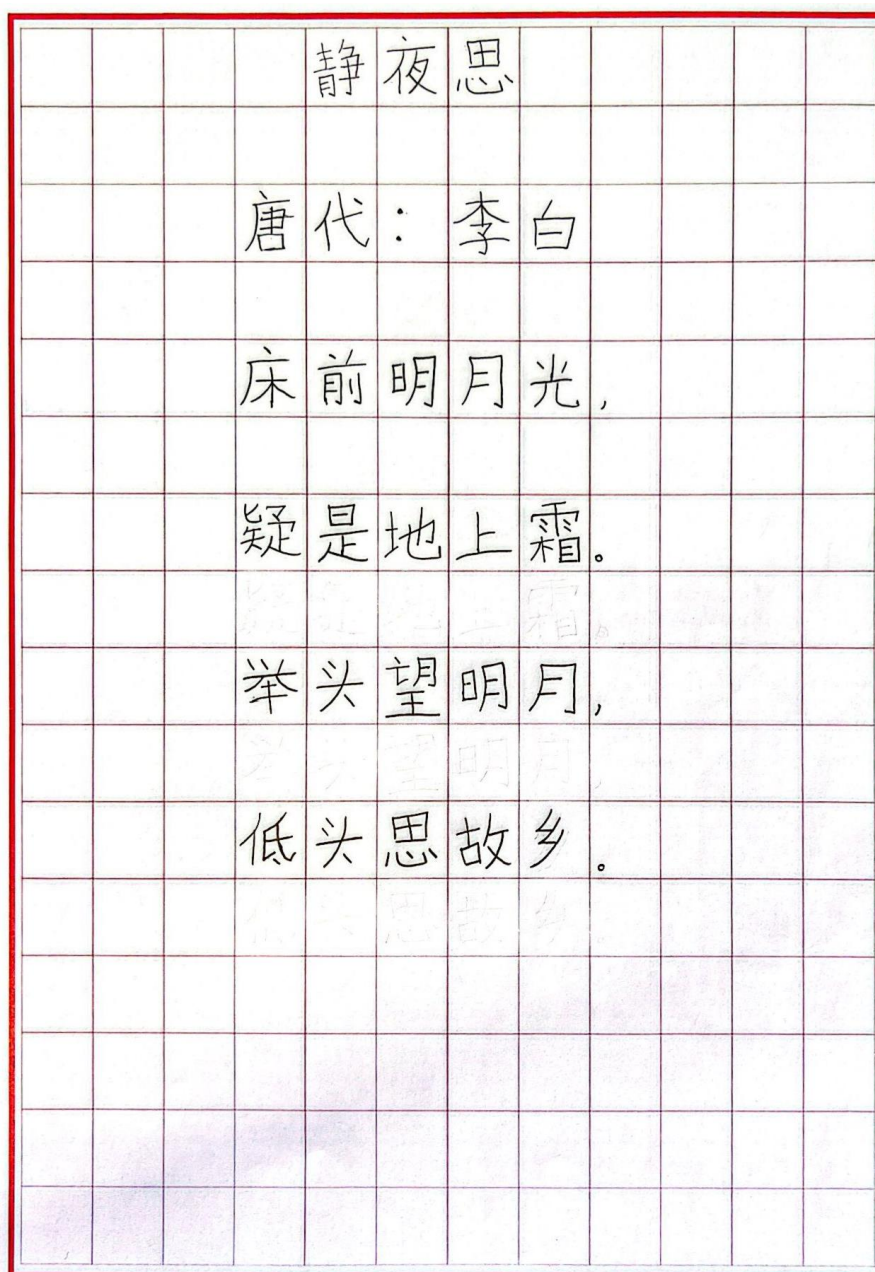 静夜思
唐代：李白
床前明月光，
疑是地上霜。
举头望明月，
低头思故乡。